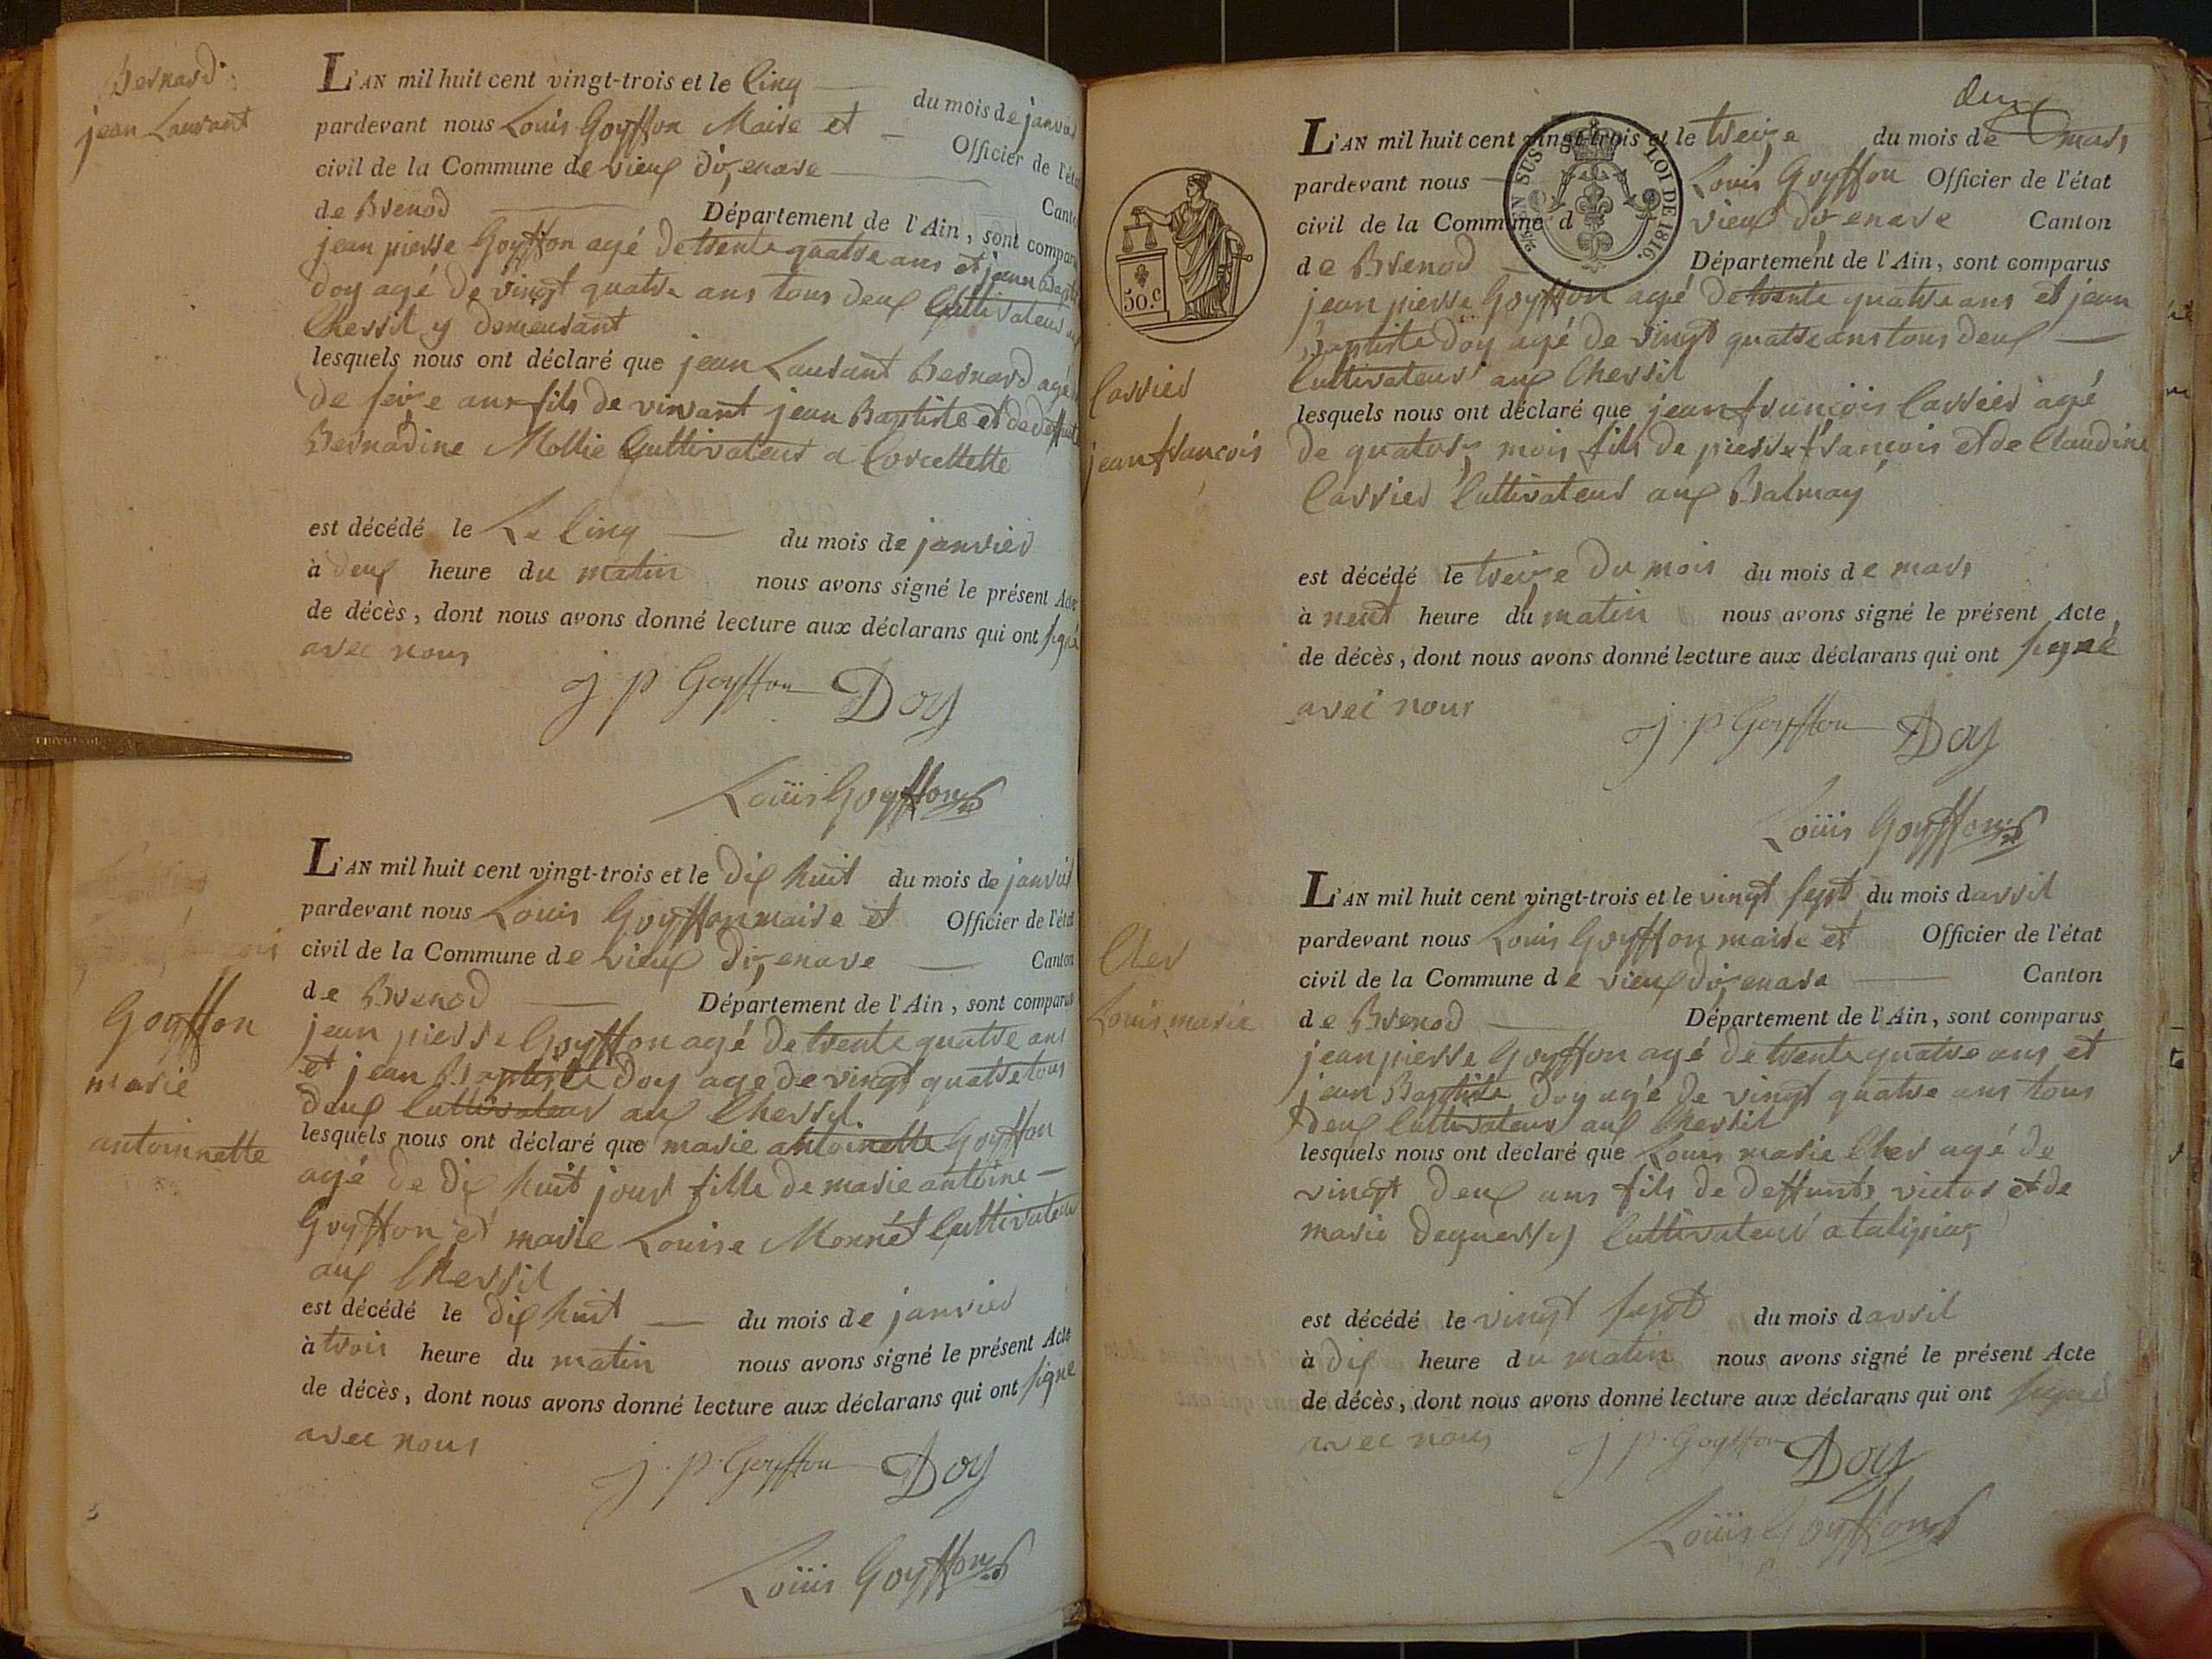 Bernard
jean Laurant
L'AN mil huit cent vingt-trois et le Cinq du mois de janvier
pardevant nous Louis Goyffon Maire et Officier de l'état
civil de la Commune de vieux diz,enave Canton
de Brenod Département de l'Ain, sont comparus
jean pierre Goyffon agé de trente quatre ans et jean Baptiste
doy agé de vingt quatre ans tous deux Cultivateurs aux
Chevril y demeurant
lesquels nous ont déclaré que jean Laurant Bernard agé
de seize ans fils de vivant jean Baptiste et de deffunte
Bernardine Mollie Cultivateur a Corcellette
est décédé le Le Cinq du mois de janvier
à deux heure du matin nous avons signé le présent Acte
de décès, dont nous avons donné lecture aux déclarans qui ont signé
avec nous
j. p Goyffon Doy
Louis Goyffon
L'AN mil huit cent vingt-trois et le dix huit du mois de janvier
pardevant nous Louis Goyffon maire et Officier de l'état
civil de la Commune de vieux diz,enave Canton
de Brenod Département de l'Ain, sont comparus
Goyffon
marie
antoinnette
jean pierre Goyffon agé de trente quatre ans
et jean Baptiste doy age de vingt quatre tous
deux Cultivateur aux Chevril
lesquels nous ont déclaré que marie antoinette Goyffon
agé de dix huit jours fille de marie antoine
Goyffon et marie Louise Monnet Cultivateur
aux Chevril
est décédé le dix huit du mois de janvier
à trois heure du matin nous avons signé le présent Acte
de décès, dont nous avons donné lecture aux déclarans qui ont signé
avec nous
j. p. Goyffon Doy
Louis Goyffon
deux
L'AN mil huit cent vingt-trois et le treize du mois de mars
pardevant nous Louis Goyffon Officier de l'état
civil de la Commune d vieux diz enave Canton
de Brenod Département de l'Ain, sont comparus
EN SUS LOI DE 1816.
50.c
jean pierre Goyffon agé de trente quatre ans et jean
Baptiste doy agé de vingt quatre ans tous deux
Cultivateurs aux Chevril
Carrier
jean francois
lesquels nous ont déclaré que jean françois Carrier agé
de quatorz mois fils de pierre françois et de Claudine
Carrier Cultivateur aux Balmay
est décédé le treize du mois du mois de mars
à neuf heure du matin nous avons signé le présent Acte
de décès, dont nous avons donné lecture aux déclarans qui ont signé
avec nous
j. p Goyffon Doy
Louis Goyffon
L'AN mil huit cent vingt-trois et le vingt sept du mois davril
pardevant nous Louis Goyffon maire et Officier de l'état
civil de la Commune de vieux diz,enave Canton
de Brenod Département de l'Ain, sont comparus
Cler
Louis marie
jean pierre Goyffon agé de trente quatre ans et
jean Baptiste doy agé de vingt quatre ans tous
deux Cultivateur aux Chevril
lesquels nous ont déclaré que Louis marie Cler agé de
vingt deux ans fils de deffunts victor et de
marie Cultivateur
est décédé le vingt sept du mois davril
à dix heure du matin nous avons signé le présent Acte
de décès, dont nous avons donné lecture aux déclarans qui ont signé
avec nous
j p. Goyffon Doy
Louis Goyffon